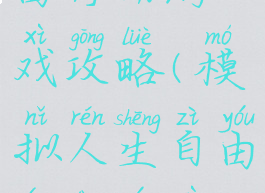 xì gōng lüè mó
戏攻略(模
nǐ rén shēng zì yóu
拟人生自由